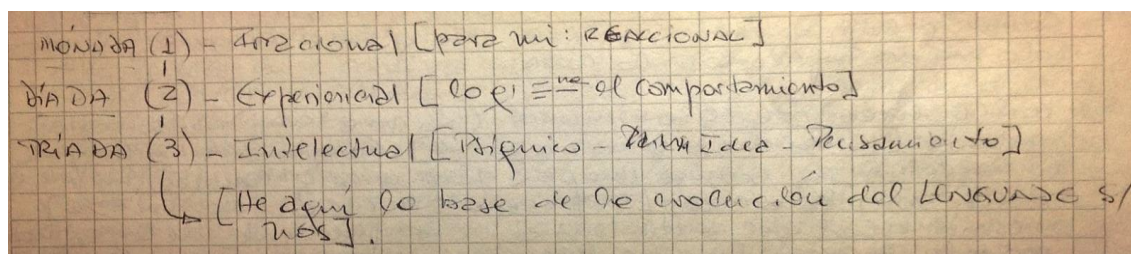 MÓNADA (1) - Irracional [para mi: REACCIONAL]
DÍADA (2) - Experiencial [ el comportamiento]
TRÍADA (3) - Intelectual [Psíquico - Idea - Pensamiento]
[He aquí la base de la evolución del LENGUAJE s/
nos].